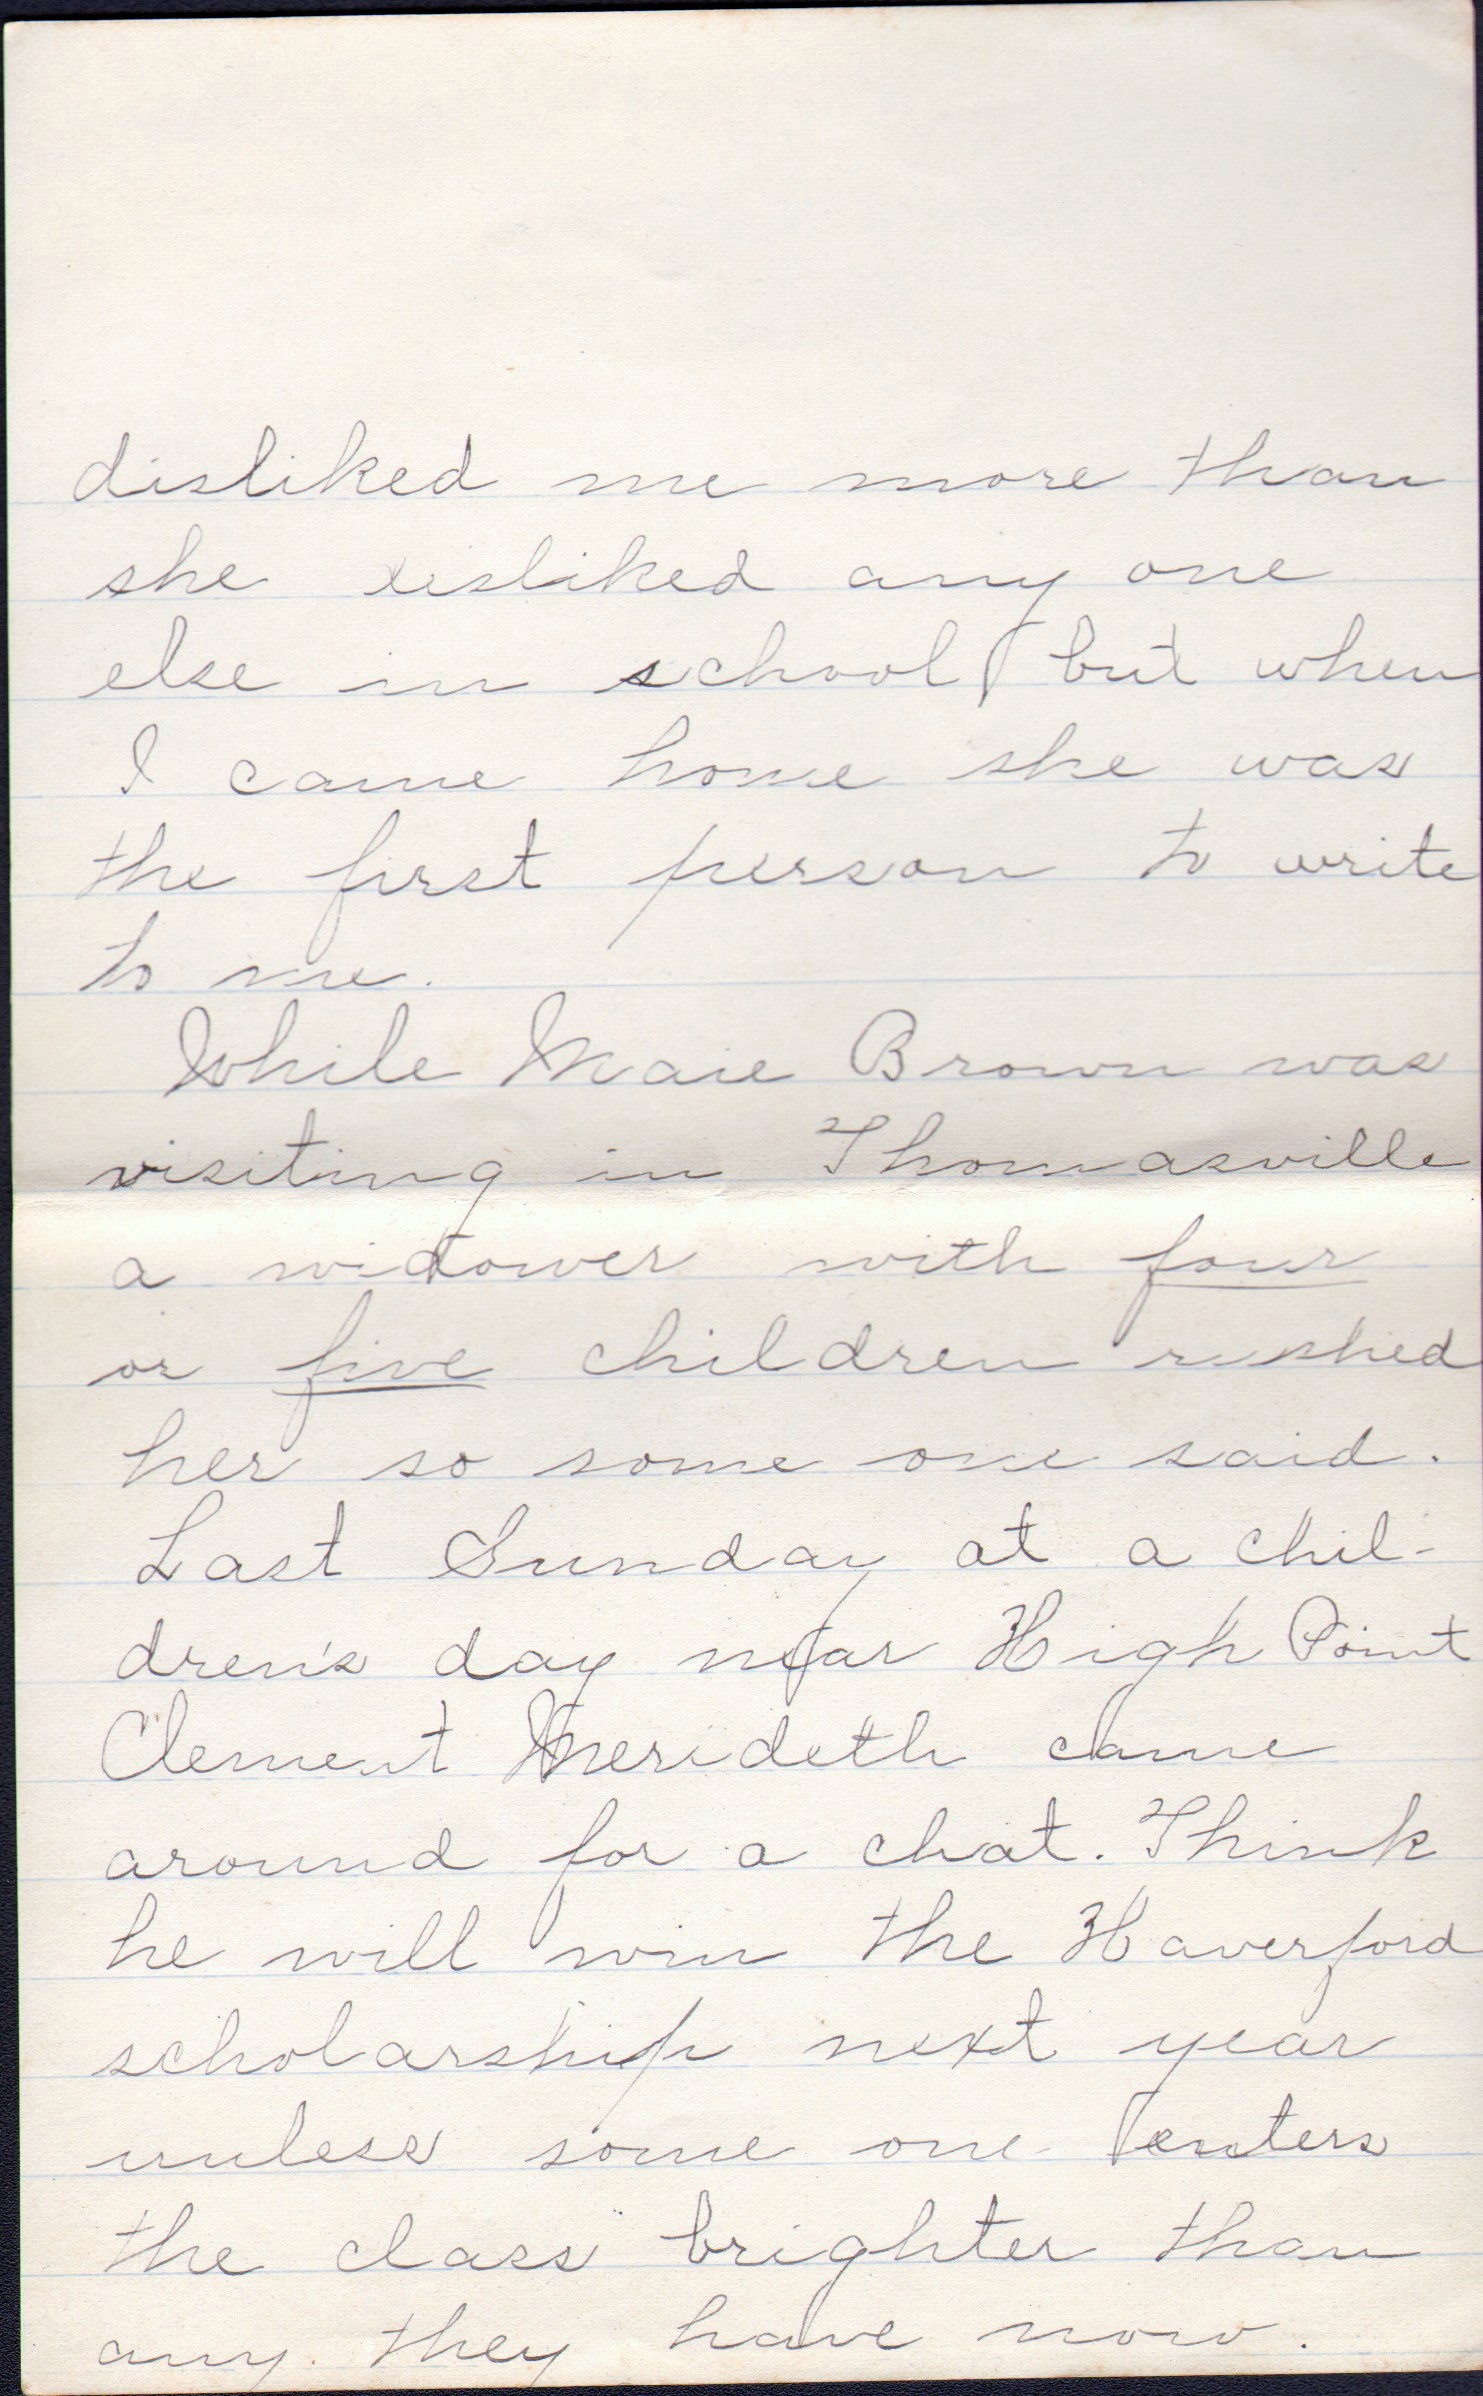 disliked me more than
she disliked any one
else in school but when
I came home she was
the first person to write
to me.
While Maie Brown was
visiting in Thomasville
a widower with four
or five children rushed
her so some one said.
Last Sunday at a chil-
dren's day near High Point
Clement Merideth came
around for a chat. Think
he will win the Haverford
scholarship next year
unless some one enters
the class brighter than
any they have now.